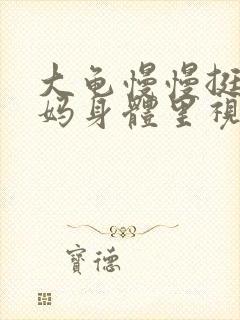 大龟慢慢挺
妈身體里視
寶德